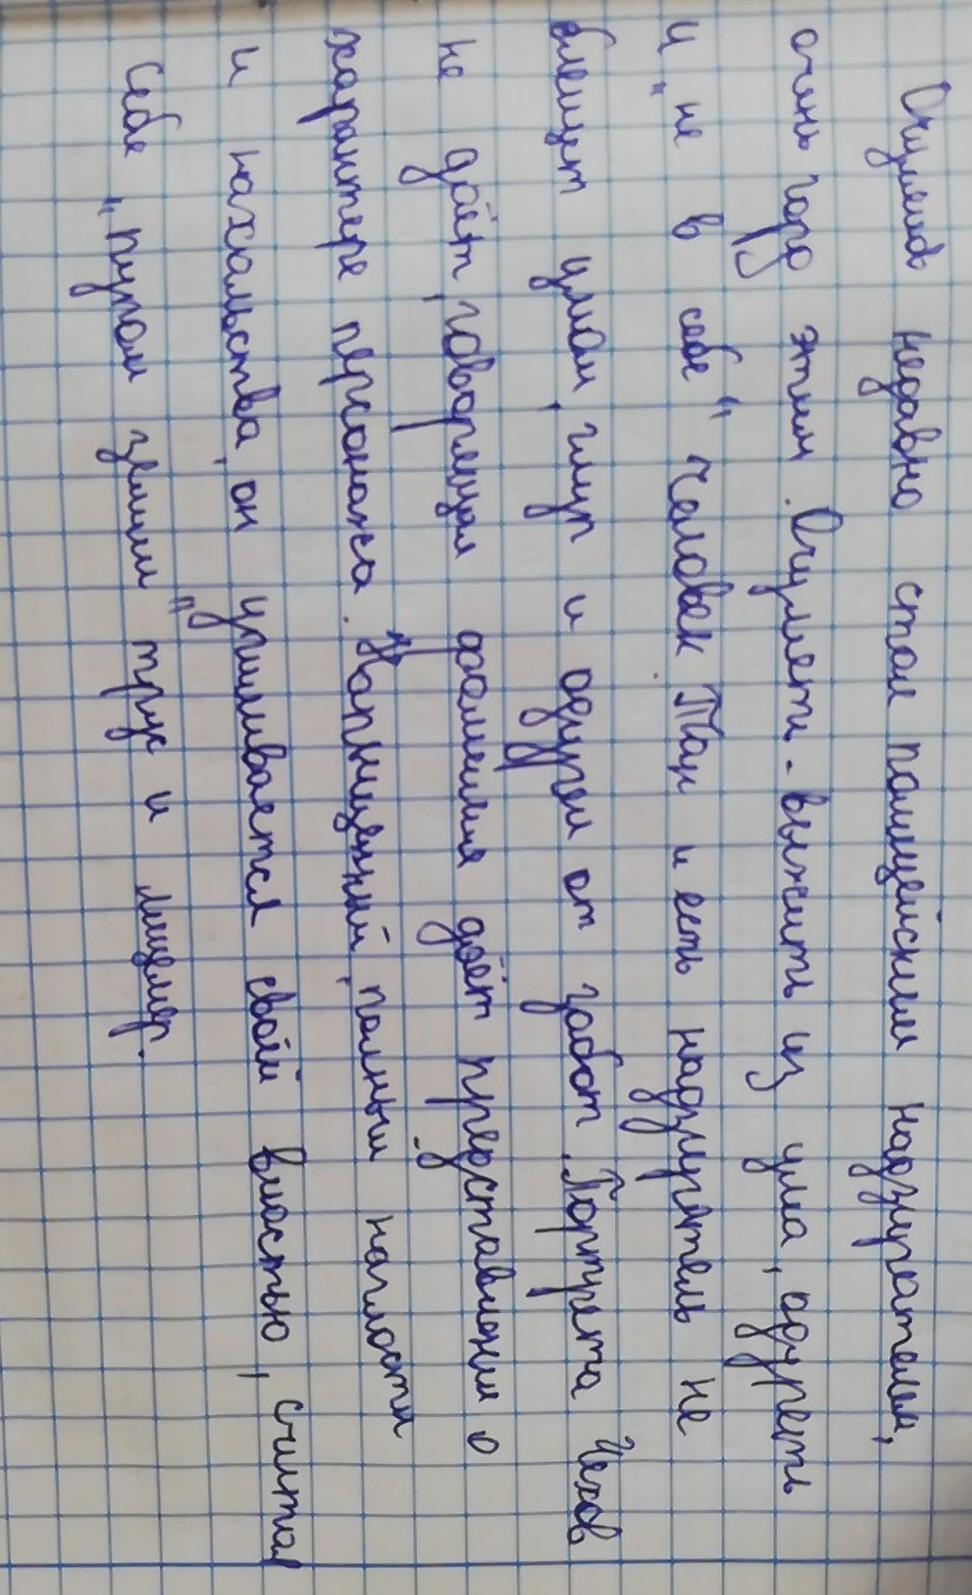 Очумелов недавно стал полицейским надзирателем,
очень горд этим. Очуметь - выжить из ума, одуреть
и „не в себе" человек. Так и есть надзиратель не
блещет умом, глуп и одурел от забот. Портрета Чехов
не даёт, говорящая фамилия даёт представление о
характере персонажа. Напыщенный, полный наглости
и нахальства, он „упивается" свой властью, считая
себя „пупом земли трус и лицемер.